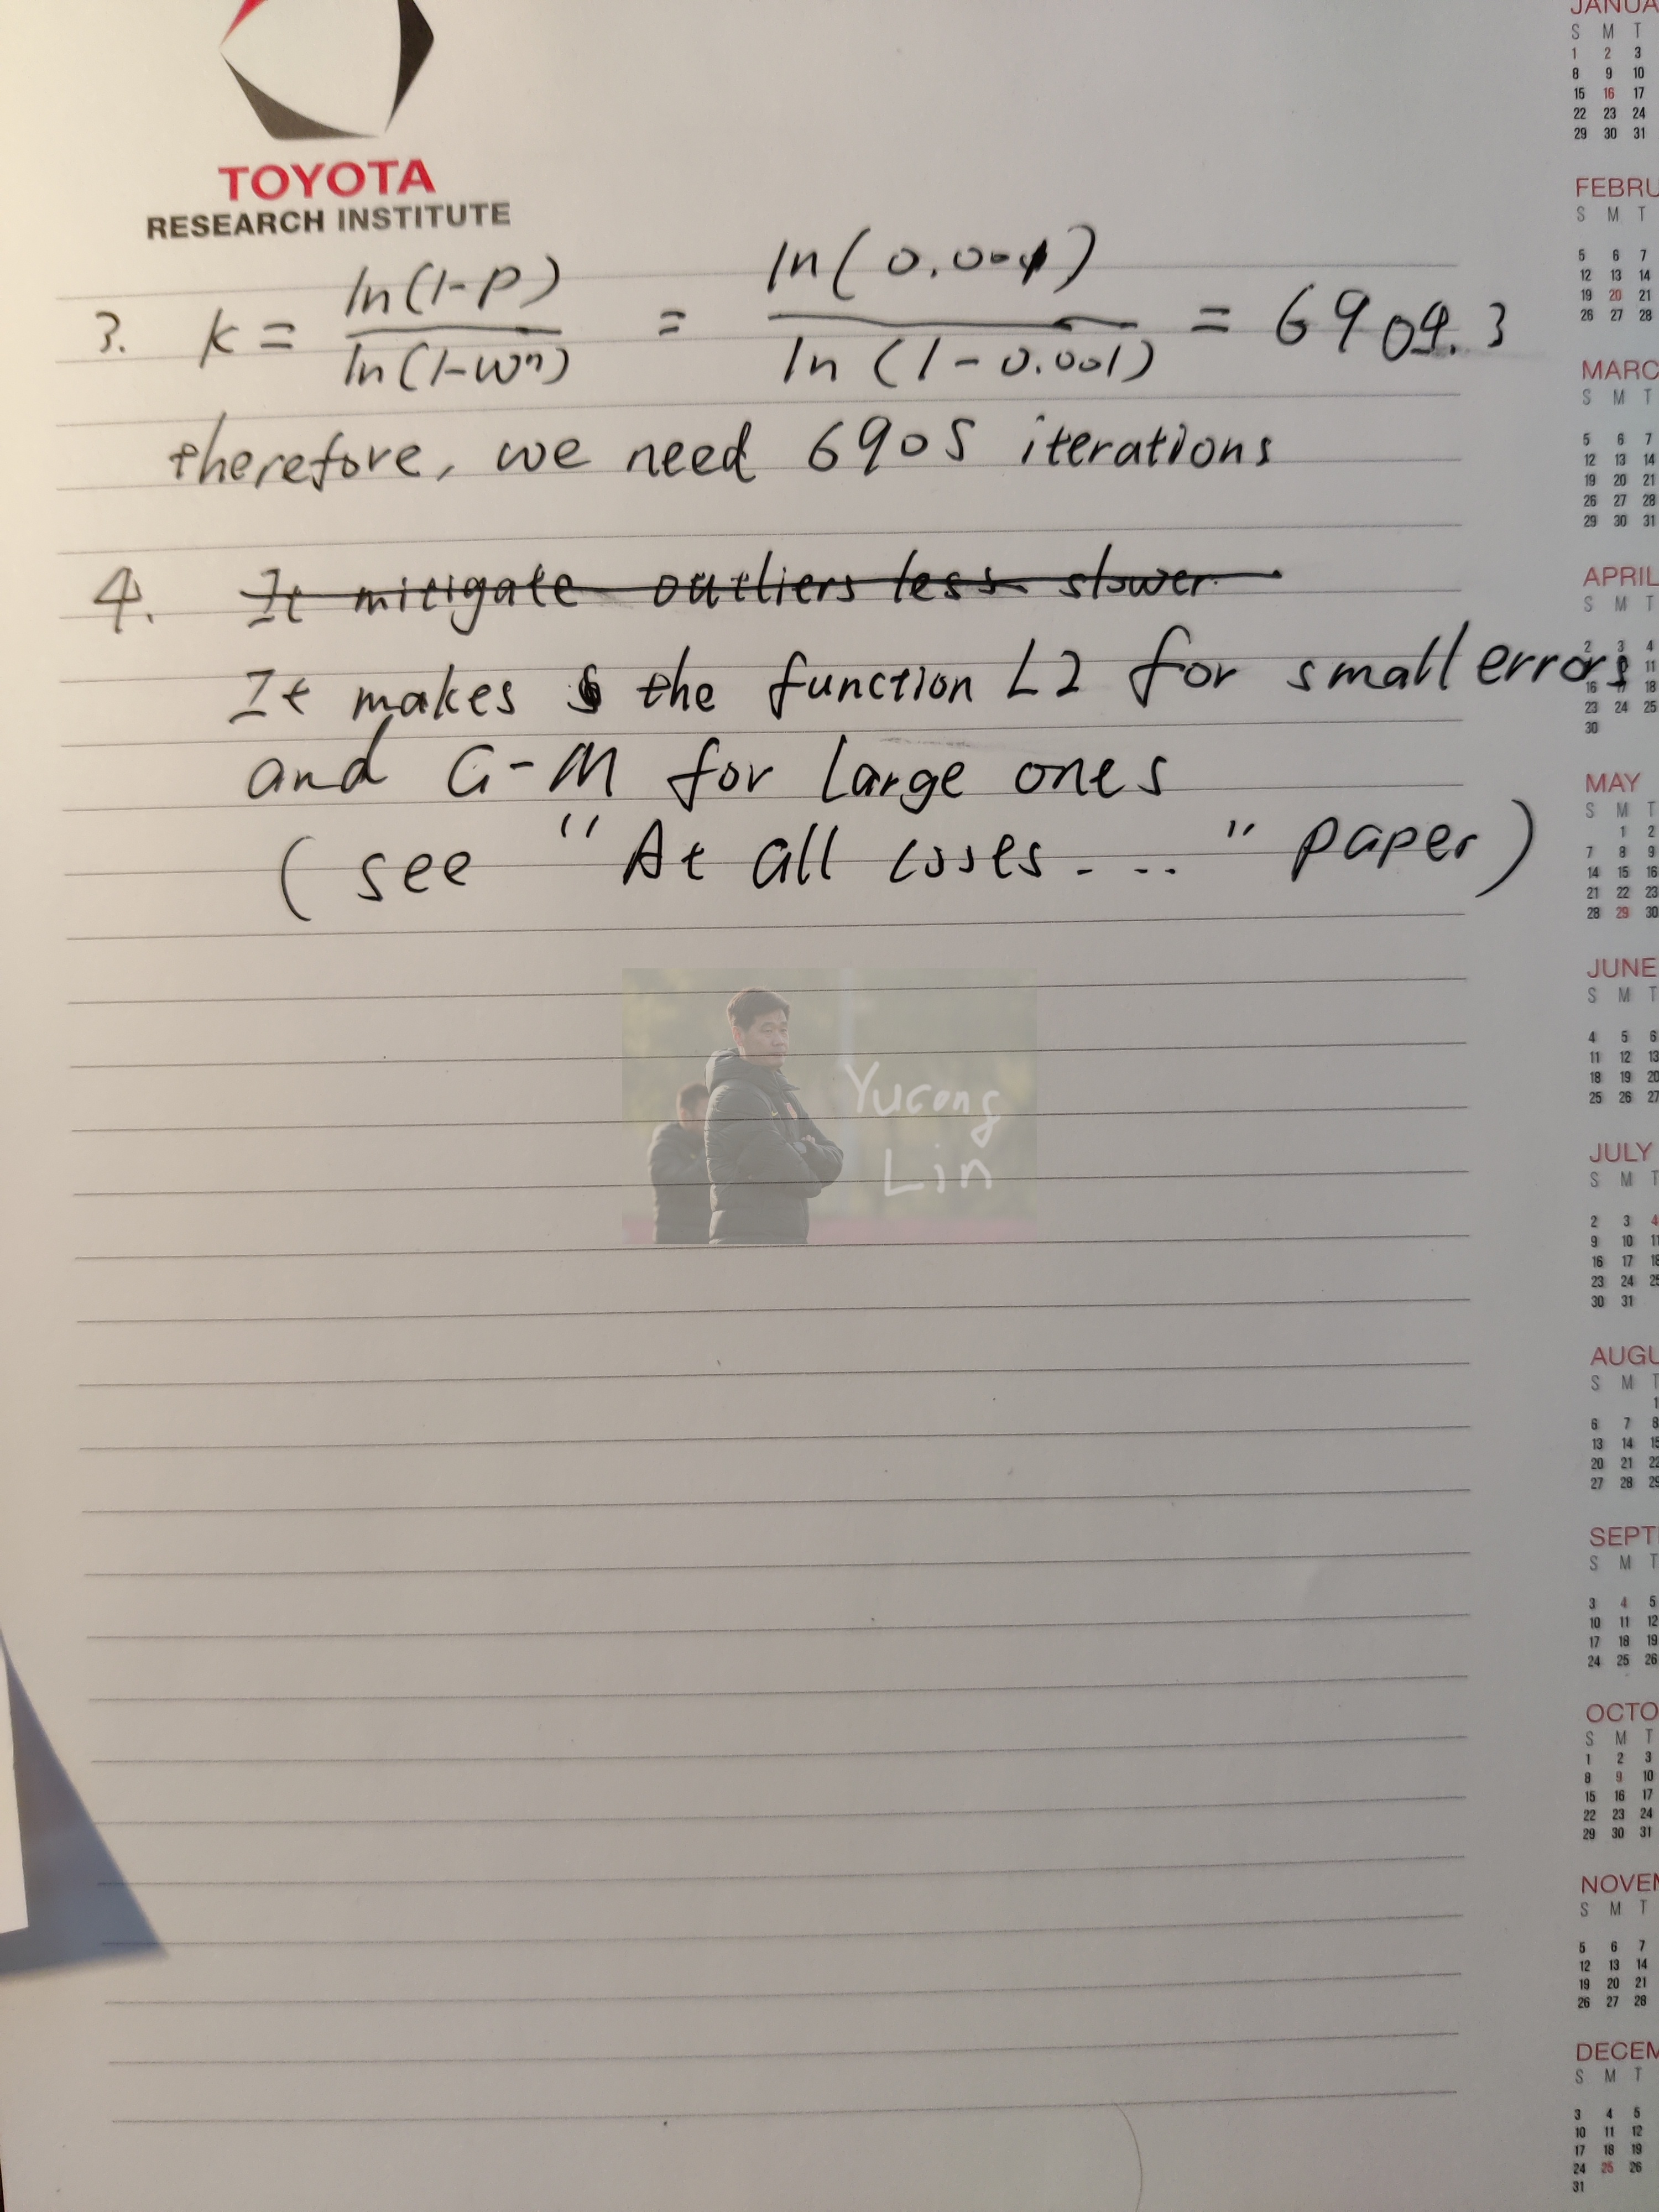 TOYOTA
RESEARCH INSTITUTE
3. k = ln(1-p) / ln(1-wⁿ) = ln(0.001) / ln(1-0.001) = 6904.3
therefore, we need 6905 iterations
4. It mitigate outliers less slower.
It makes the function L2 for small errors
and G-M for large ones
(see "At all coses - .." paper)
Yucong
Lin
JANUA
S M T
1 2 3
8 9 10
15 16 17
22 23 24
29 30 31
FEBRU
S M T
5 6 7
12 13 14
19 20 21
26 27 28
MARC
S M T
5 6 7
12 13 14
19 20 21
26 27 28
29 30 31
APRIL
S M T
2 3 4
11
16 17 18
23 24 25
30
MAY
S M T
1 2
7 8 9
14 15 16
21 22 23
28 29 30
JUNE
S M T
4 5 6
11 12 13
18 19 20
25 26 27
JULY
S M T
2 3 4
9 10 11
16 17 18
23 24 25
30 31
AUGU
S M T
1
6 7 8
13 14 15
20 21 22
27 28 29
SEPT
S M T
3 4 5
10 11 12
17 18 19
24 25 26
OCTO
S M T
1 2 3
8 9 10
15 16 17
22 23 24
29 30 31
NOVEM
S M T
5 6 7
12 13 14
19 20 21
26 27 28
DECEM
S M T
3 4 5
10 11 12
17 18 19
24 25 26
31